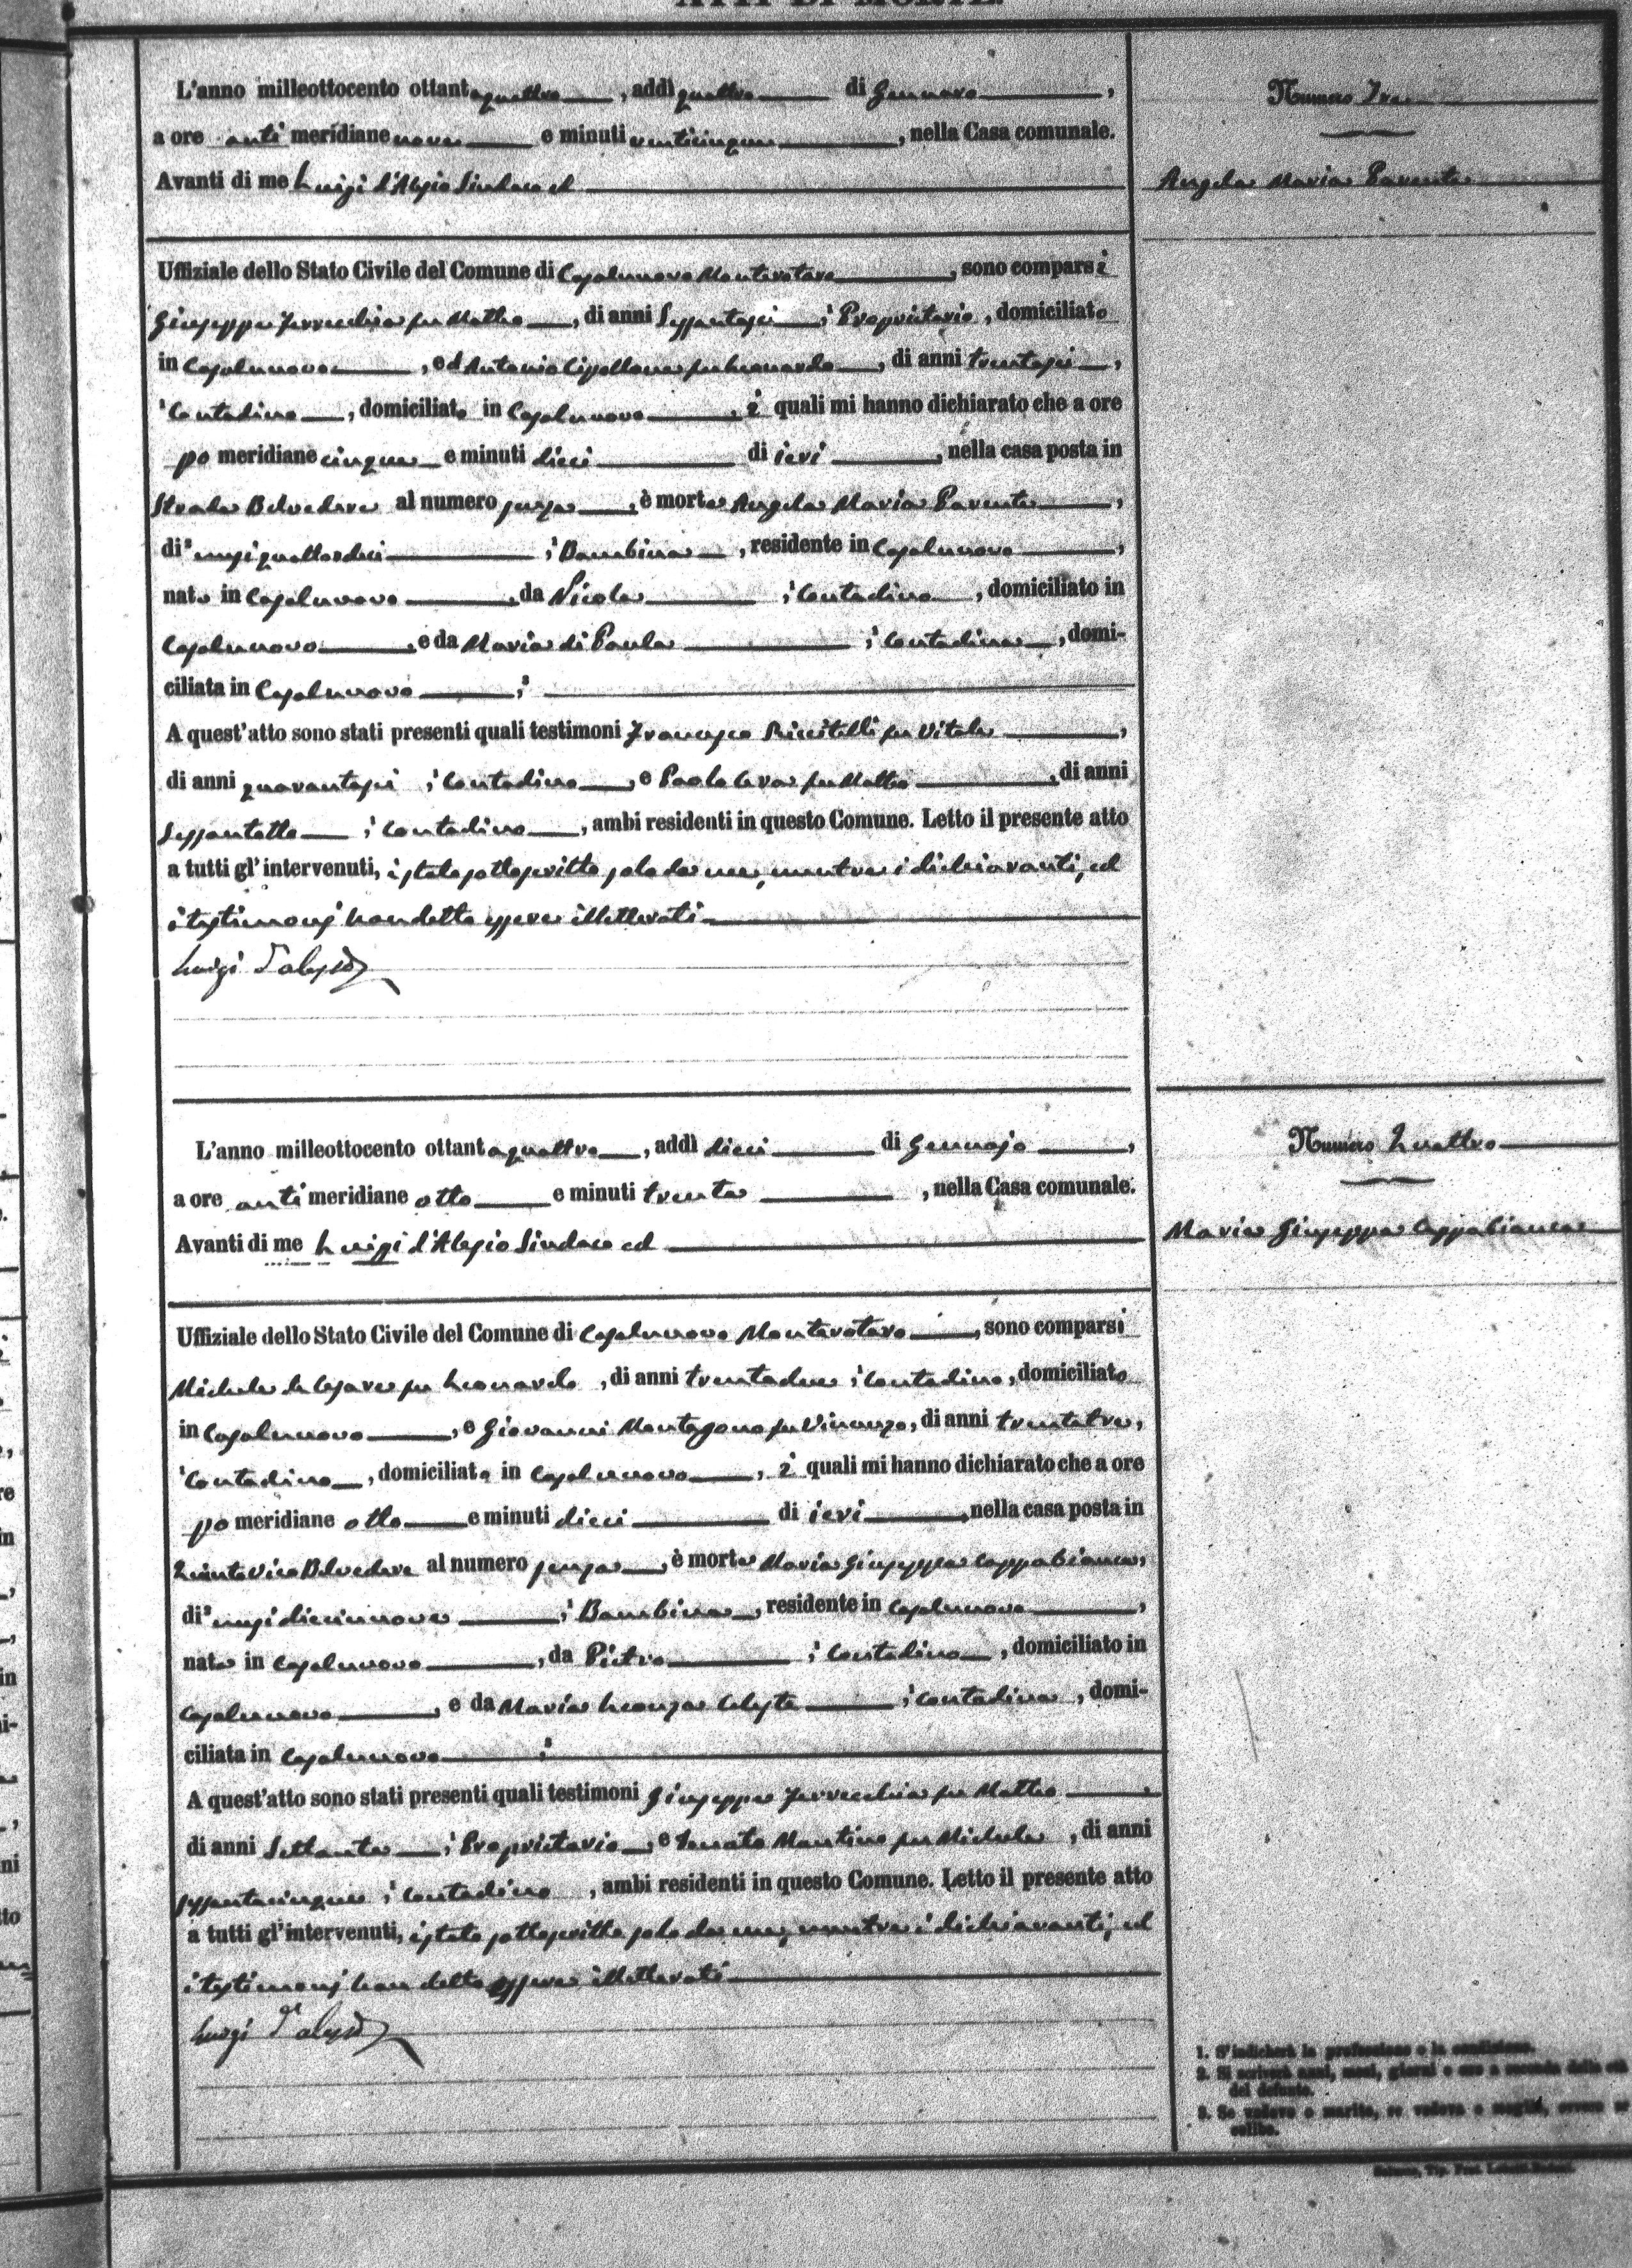 ATTI DI MORTE.
L'anno milleottocento ottantaquattro, addì quattro di Gennaro,
a ore anti meridiane nove e minuti venticinque, nella Casa comunale.
Avanti di me Luigi d'Alesio Sindaco ed
Uffiziale dello Stato Civile del Comune di Casalnuovo Monterotaro, sono comparsi
Giuseppe Ferrecchia fu Matteo, di anni Sessantasei, Proprietario, domiciliato
in Casalnuovo, ed Antonio Cipollone fu Leonardo, di anni trentasei,
Contadino, domiciliato in Casalnuovo, i quali mi hanno dichiarato che a ore
po meridiane cinque e minuti dieci di ieri, nella casa posta in
Strada Belvedere al numero senza, è morta Angela Maria Parente,
di mesi quattordici, Bambina, residente in Casalnuovo,
nata in Casalnuovo, da Nicola, Contadino, domiciliato in
Casalnuovo, e da Maria di Paula, Contadina, domi-
ciliata in Casalnuovo;
A quest'atto sono stati presenti quali testimoni Francesco Riccitelli fu Vitale,
di anni quarantasei, Contadino, e Paolo Ceva fu Matteo, di anni
Sessantotto, Contadino, ambi residenti in questo Comune. Letto il presente atto
a tutti gl'intervenuti, è stato sottoscritto solo da me, mentre i dichiaranti, ed
i testimonj han detto essere illetterati
Luigi d'Alesio
Numero Tre
Angela Maria Parente
L'anno milleottocento ottantaquattro, addì dieci di Gennajo,
a ore anti meridiane otto e minuti trenta, nella Casa comunale.
Avanti di me Luigi d'Alesio Sindaco ed
Uffiziale dello Stato Civile del Comune di Casalnuovo Monterotaro, sono comparsi
Michele de Cesare fu Leonardo, di anni trentadue, Contadino, domiciliato
in Casalnuovo, e Giovanni Montagano fu Vincenzo, di anni trentatre,
Contadino, domiciliato in Casalnuovo, i quali mi hanno dichiarato che a ore
po meridiane otto e minuti dieci di ieri, nella casa posta in
Quinto Vico Belvedere al numero senza, è morta Maria Giuseppa Cappabianca,
di mesi diecinnove, Bambina, residente in Casalnuovo,
nata in Casalnuovo, da Pietro, Contadino, domiciliato in
Casalnuovo, e da Maria Leonza Celeste, Contadina, domi-
ciliata in Casalnuovo;
A quest'atto sono stati presenti quali testimoni Giuseppe Ferrecchia fu Matteo,
di anni Settanta, Proprietario, e Donato Mantino fu Michele, di anni
sessantacinque, Contadino, ambi residenti in questo Comune. Letto il presente atto
a tutti gl'intervenuti, è stato sottoscritto solo da me, mentre i dichiaranti, ed
i testimonj han detto essere illetterati
Luigi d'Alesio
Numero Quattro
Maria Giuseppa Cappabianca
1. S'indicherà la professione o la condizione.
2. Si scriverà anni, mesi, giorni o ore a seconda della età
del defunto.
3. Se vedovo o marito, se vedova o moglie, ovvero se
celibe.